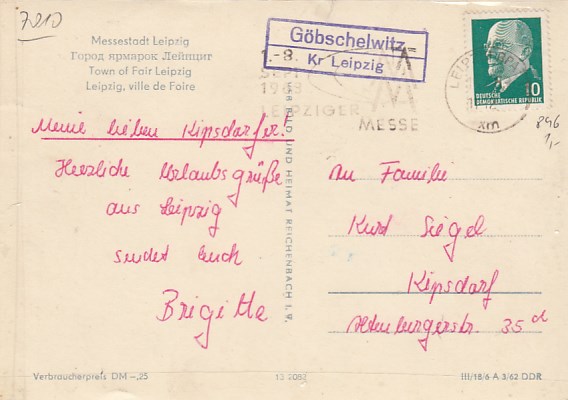 7010
Messestadt Leipzig
Город ярмарок Лейпциг
Town of Fair Leipzig
Leipzig, ville de Foire
Göbschelwitz
Kr Leipzig
1.-8.
SEPT
1963
LEIPZIGER
MESSE
MM
LEIPZIG
10
DEUTSCHE
DEMOKRATISCHE REPUBLIK
xm
846
1,-
Meine lieben Kipsdorfer!
Herzliche Urlaubsgrüße
aus Leipzig
sendet Euch
Brigitte
BILD UND HEIMAT REICHENBACH I. V.
An Familie
Kurt Siegel
Kipsdorf
Altenburgerstr. 35 d
Verbraucherpreis DM -,25
13 2057
III/18/6 A 3/62 DDR